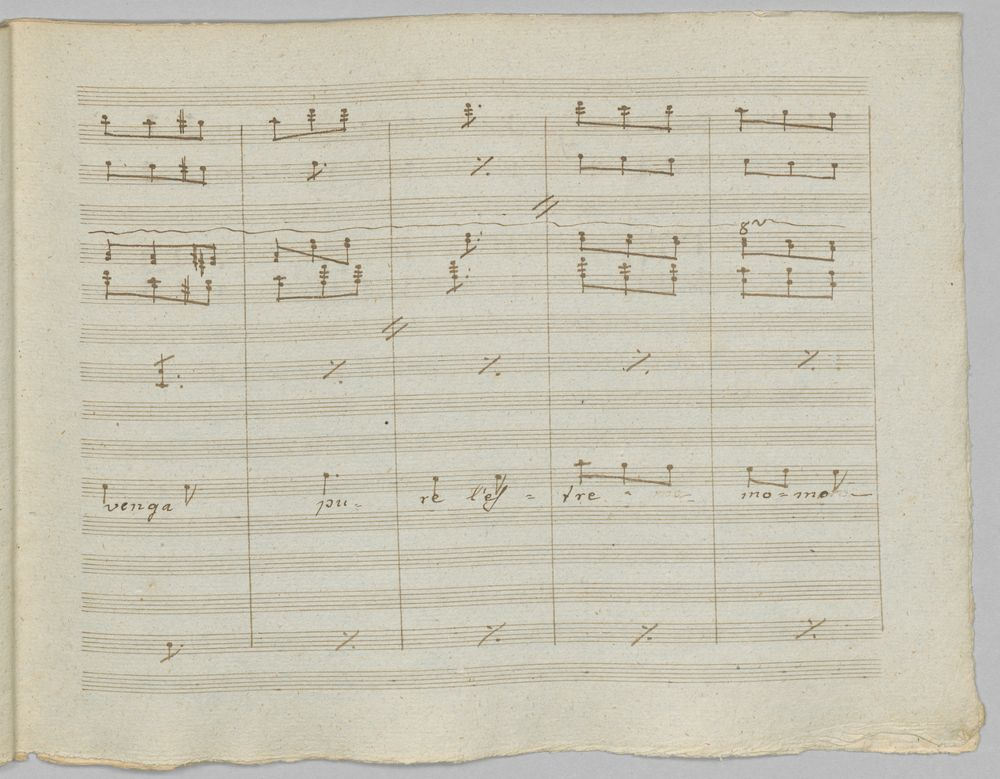 8va
venga pu- re l'es- tre- mo- mo-